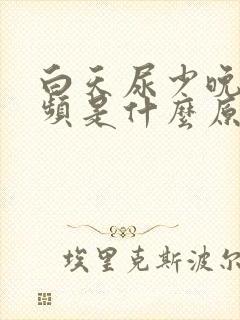 白天尿少晚
頻是什麼原
埃里克斯波尔